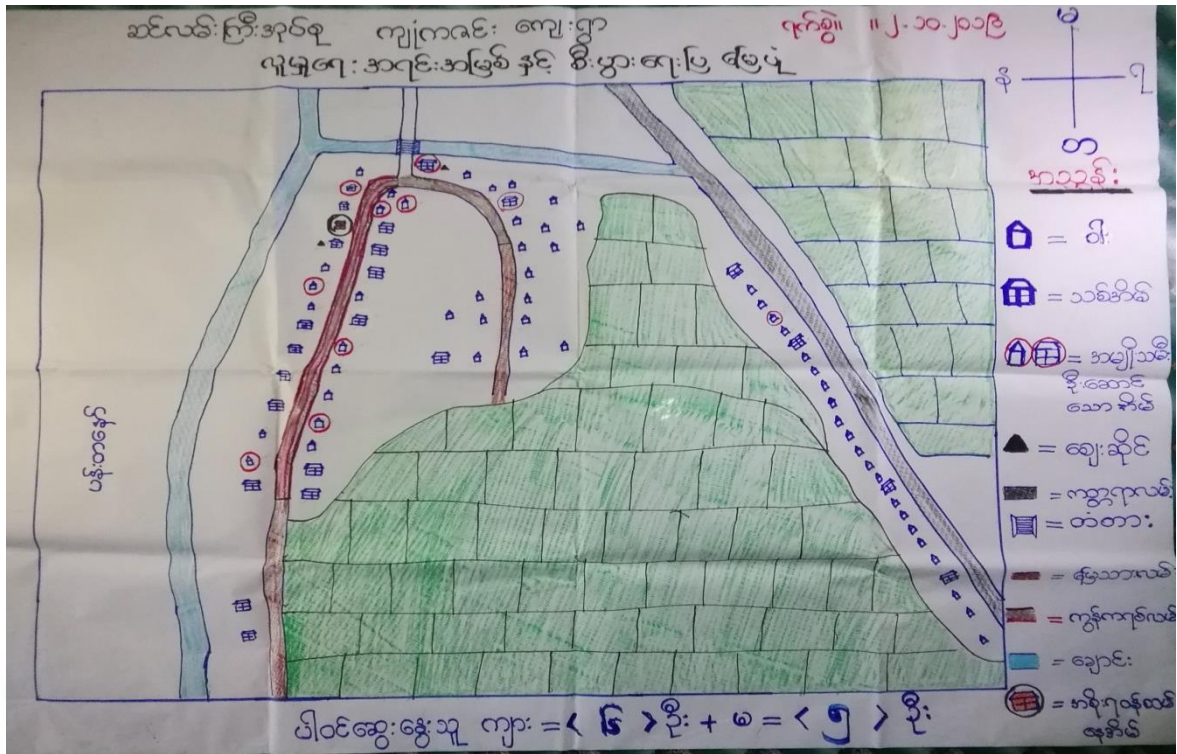 ဆင်လမ်းကြီးအုပ်စု ကျုံကဇင်း ကျေးရွာ
ရက်စွဲ။ ။၂-၁၀-၂၀၁၉
လူမှုရေး အရင်းအမြစ် နှင့် စီးပွားရေးပြ မြေပုံ
မ
န
ရ
တ
ပန်းတနော်
= ဝါး
= သစ်အိမ်
= အမျိုးသမီး
ဦးဆောင်
သော အိမ်
= ဈေးဆိုင်
= ကတ္တရာလမ်း
= တံတား
= မြေသားလမ်း
= ကွန်ကရစ်လမ်း
= ချောင်း
= အစိုးရဝန်ထမ်း
နေအိမ်
ပါဝင်ဆွေးနွေးသူ ကျား =< ၆ >ဦး + မ =< ၅ > ဦး